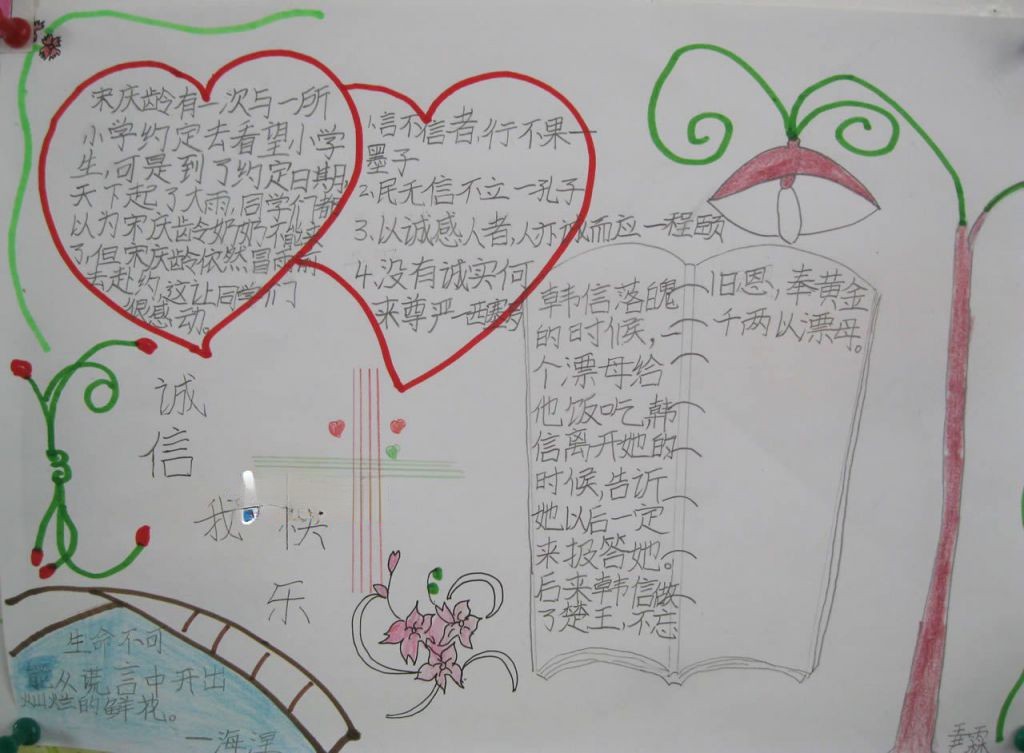 宋庆龄有一次与一所
小学约定去看望小学
生,可是到了约定日期,
天下起了大雨,同学们都
以为宋庆龄奶奶不能来
了,但宋庆龄依然冒雨前
去赴约,这让同学们
很感动。
1.信不信者,行不果一
墨子
2.民无信不立一孔子
3.以诚感人者,人亦诚而应一程颐
4.没有诚实何
来尊严一西塞罗
韩信落魄
的时候,一
个漂母给
他饭吃,韩
信离开她的
时候,告诉
她以后一定
来报答她。
后来韩信做
了楚王,不忘
旧恩,奉黄金
千两以漂母。
诚
信
我 快
乐
生命不可
能从谎言中开出
灿烂的鲜花。
一海涅